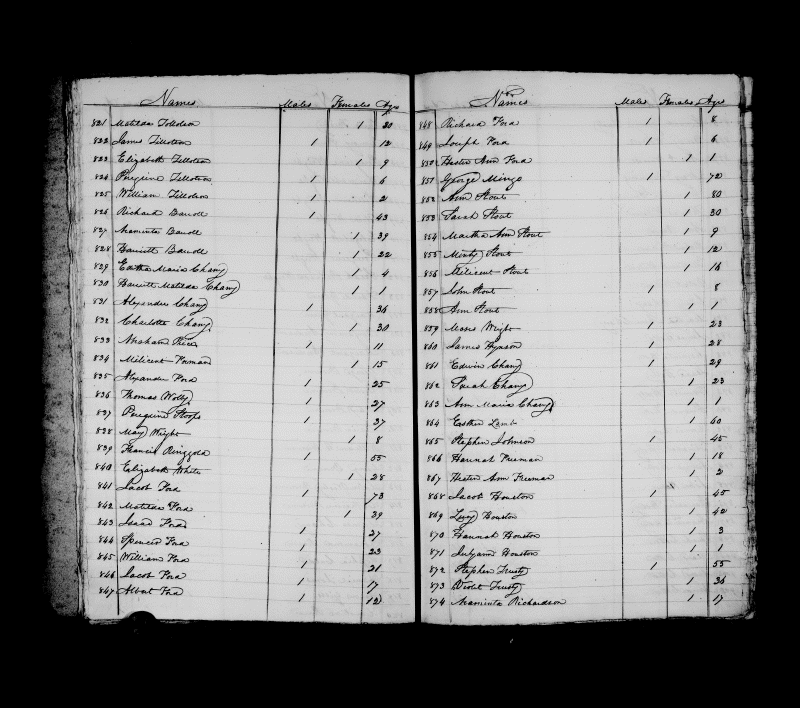 Names Males Females Ages
821 Matilda Tillotson 1 20
822 James Tillotson 1 12
823 Elizabeth Tillotson 1 9
824 Peregrine Tillotson 1 6
825 William Tillotson 1 2
826 Richard 1 43
827 Araminta 1 39
828 Harriett 1 22
829 Maria Chany 1 4
830 Harriett Matilda Chany 1 1
831 Alexander Chany 1 36
832 Charlotte Chany 1 30
833 Abraham Rice 1 11
834 Milicent Forman 1 15
835 Alexander Ford 1 25
836 Thomas 1 27
837 Peregrine 1 37
838 May Wright 1 8
839 Francis Ringgold 1 55
840 Elizabeth White 1 28
841 Jacob Ford 1 73
842 Matilda Ford 1 39
843 Isaac Ford 1 27
844 Spencer Ford 1 23
845 William Ford 1 21
846 Jacob Ford 1 17
847 Albert Ford 1 12
Names Males Females Ages
848 Richard Ford 1 8
849 Joseph Ford 1 6
850 Hester Ann Ford 1 1
851 George Mingo 1 72
852 Ann Stout 1 80
853 Sarah Stout 1 30
854 Martha Ann Stout 1 9
855 Minty Stout 1 12
856 Milicent Stout 1 16
857 John Stout 1 8
858 Ann Stout 1 1
859 Moses Wright 1 23
860 James Hynson 1 28
861 Edwin Chany 1 29
862 Sarah Chany 1 23
863 Ann Maria Chany 1 1
864 Esther Lamb 1 60
865 Stephen Johnson 1 45
866 Hannah Freeman 1 18
867 Hester Ann Freeman 1 2
868 Jacob Houston 1 45
869 Lucy Houston 1 42
870 Hannah Houston 1 3
871 Julyann Houston 1 1
872 Stephen Trusty 1 55
873 Violet Trusty 1 36
874 Araminta Richardson 1 17